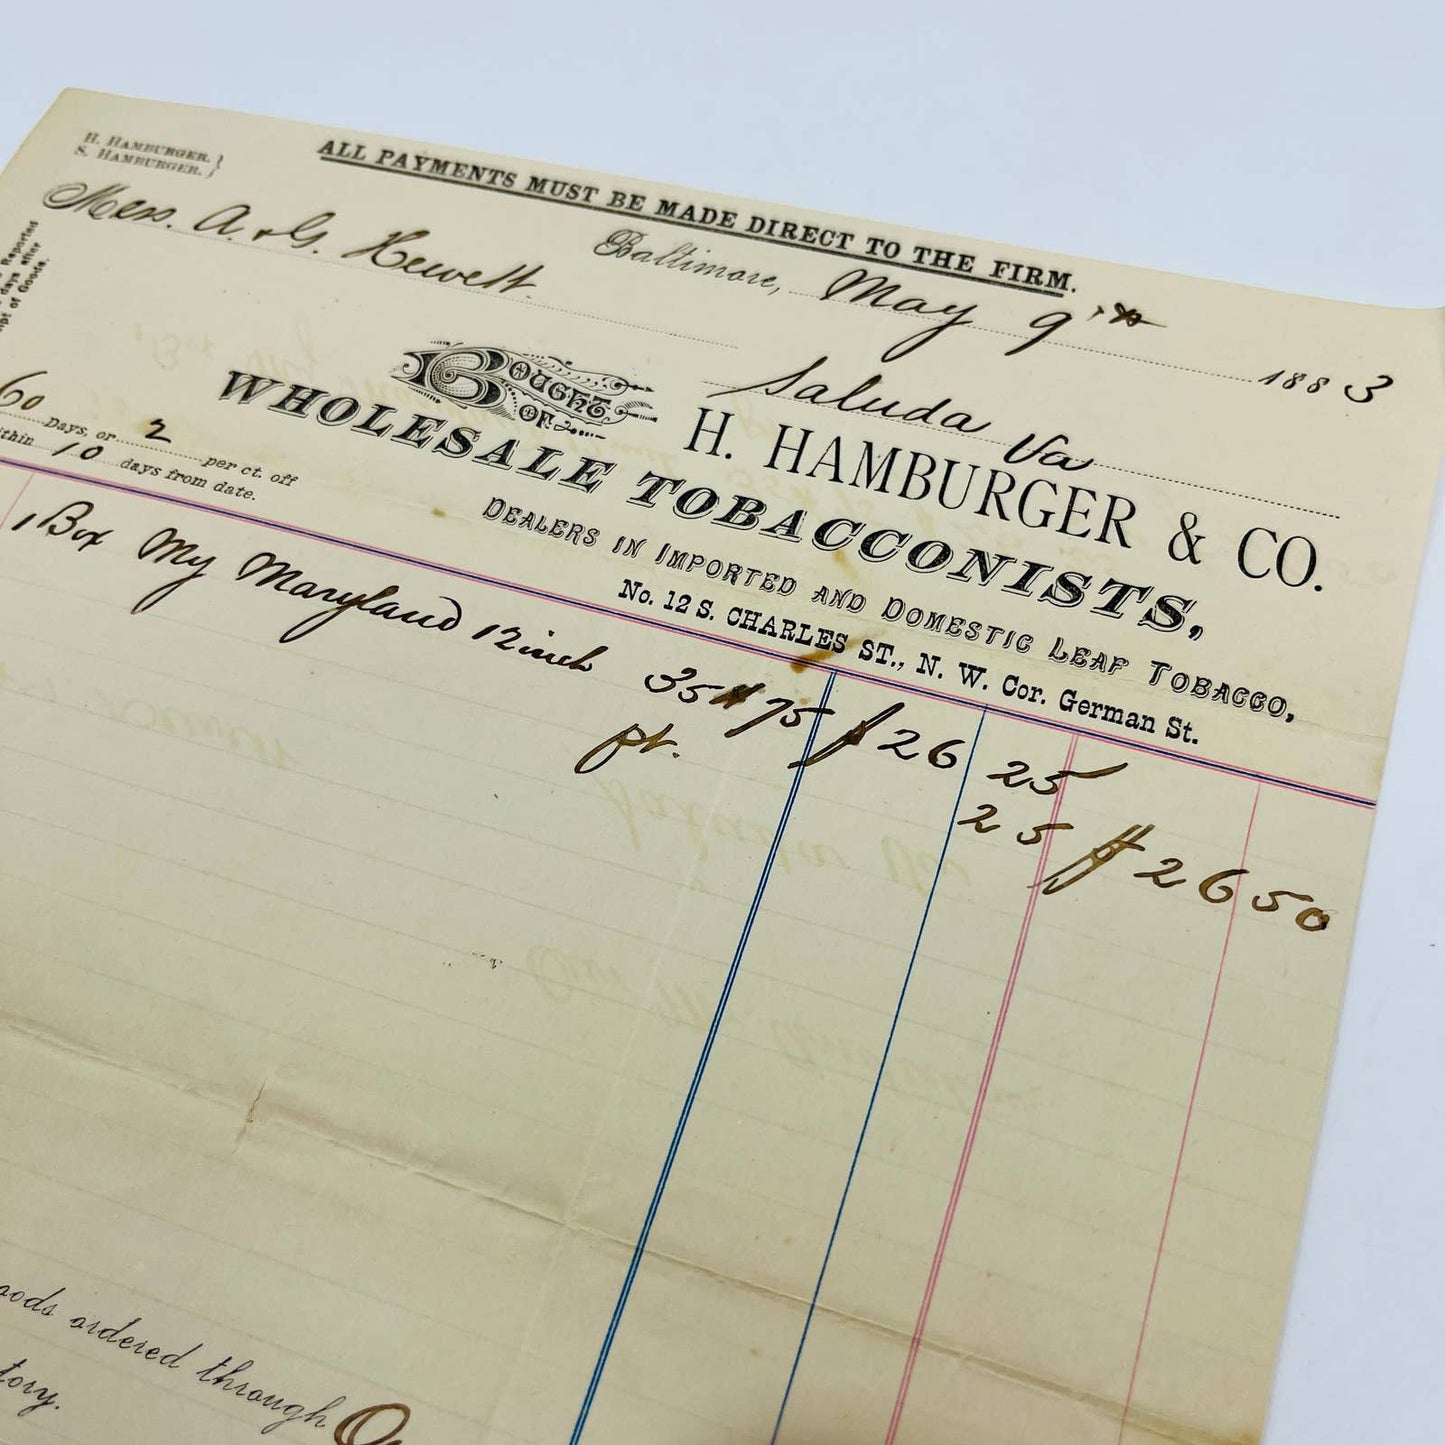 H. HAMBURGER.
S. HAMBURGER.
ALL PAYMENTS MUST BE MADE DIRECT TO THE FIRM.
Baltimore, May 9th 1883
Mess. A. & G. Hewett.
Saluda Va
Reported
days after
of Goods.
BOUGHT OF H. HAMBURGER & CO.
WHOLESALE TOBACCONISTS,
DEALERS IN IMPORTED AND DOMESTIC LEAF TOBACCO,
No. 12 S. CHARLES ST., N. W. Cor. German St.
60 Days, or 2 per ct. off
within 10 days from date.
1 Box My Maryland 12 inch 35# 75 $ 26 25
pt. 25 $ 26 50
ordered through